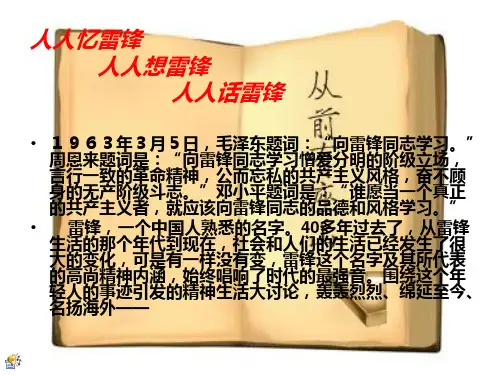 人人忆雷锋
人人想雷锋
人人话雷锋
• 1963年3月5日,毛泽东题词:“向雷锋同志学习。”
周恩来题词是:“向雷锋同志学习憎爱分明的阶级立场,
言行一致的革命精神,公而忘私的共产主义风格,奋不顾
身的无产阶级斗志。”邓小平题词是:“谁愿当一个真正
的共产主义者,就应该向雷锋同志的品德和风格学习。”
• 雷锋,一个中国人熟悉的名字。40多年过去了,从雷锋
生活的那个年代到现在,社会和人们的生活已经发生了很
大的变化,可是有一样没有变,雷锋这个名字及其所代表
的高尚精神内涵,始终唱响了时代的最强音。围绕这个年
轻人的事迹引发的精神生活大讨论,轰轰烈烈、绵延至今、
名扬海外——
从前